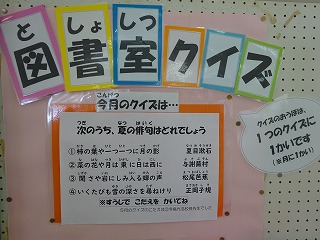 としょしつ
図書室クイズ
こんげつ
今月のクイズは…
つぎ なつ はいく
次のうち、夏の俳句はどれでしょう
①柿の葉や一つ一つに月の影 夏目漱石
②菜の花や月は東に日は西に 与謝蕪村
③閑さや岩にしみ入る蝉の声 松尾芭蕉
④いくたびも雪の深さを尋ねけり 正岡子規
※すうじで こたえを かいてね
クイズのおうぼは、
1つのクイズに
1かいです
(※月に1かい)